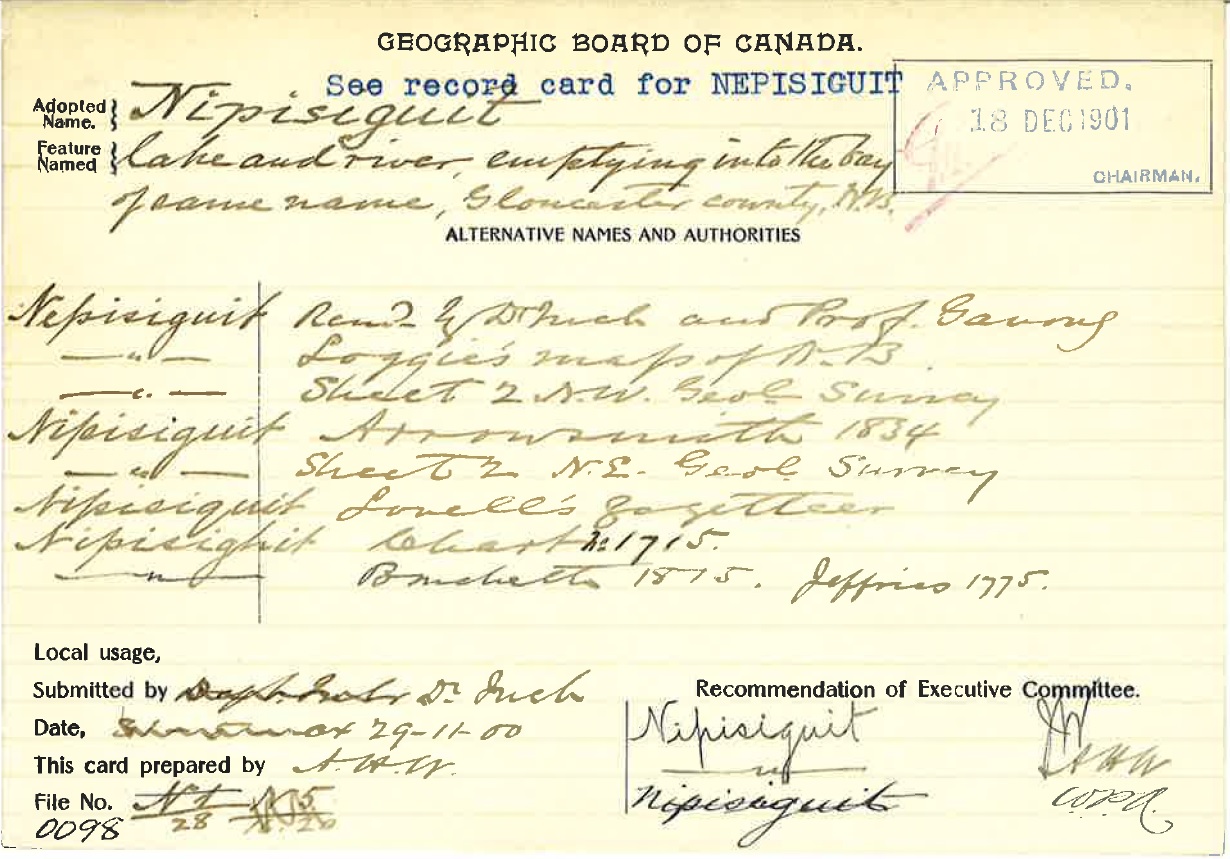 GEOGRAPHIC BOARD OF CANADA.
See record card for NEPISIGUIT
APPROVED.
18 DEC 1901
CHAIRMAN.
Adopted Name. } Nipisiguit
Feature Named } lake and river, emptying into the bay
of same name, Gloucester county, N.B.
ALTERNATIVE NAMES AND AUTHORITIES
Nepisiguit Recmd. by Dr Inch and Prof. Ganong
— " — Loggie's map of N.B.
— " — Sheet 2 N.W. Geol. Survey
Nipisiguit Arrowsmith 1834
— " — Sheet 2 N.E. Geol. Survey
Nipisiquit Lovell's gazetteer
Nipisighit Chart No 1715.
— " — Bouchette 1815. Jeffries 1775.
Local usage,
Submitted by Dr Inch
Date, 29-11-00
This card prepared by A.H.W.
File No.
28
0098
Recommendation of Executive Committee.
Nipisiguit
— " —
Nipisiguit
AHW